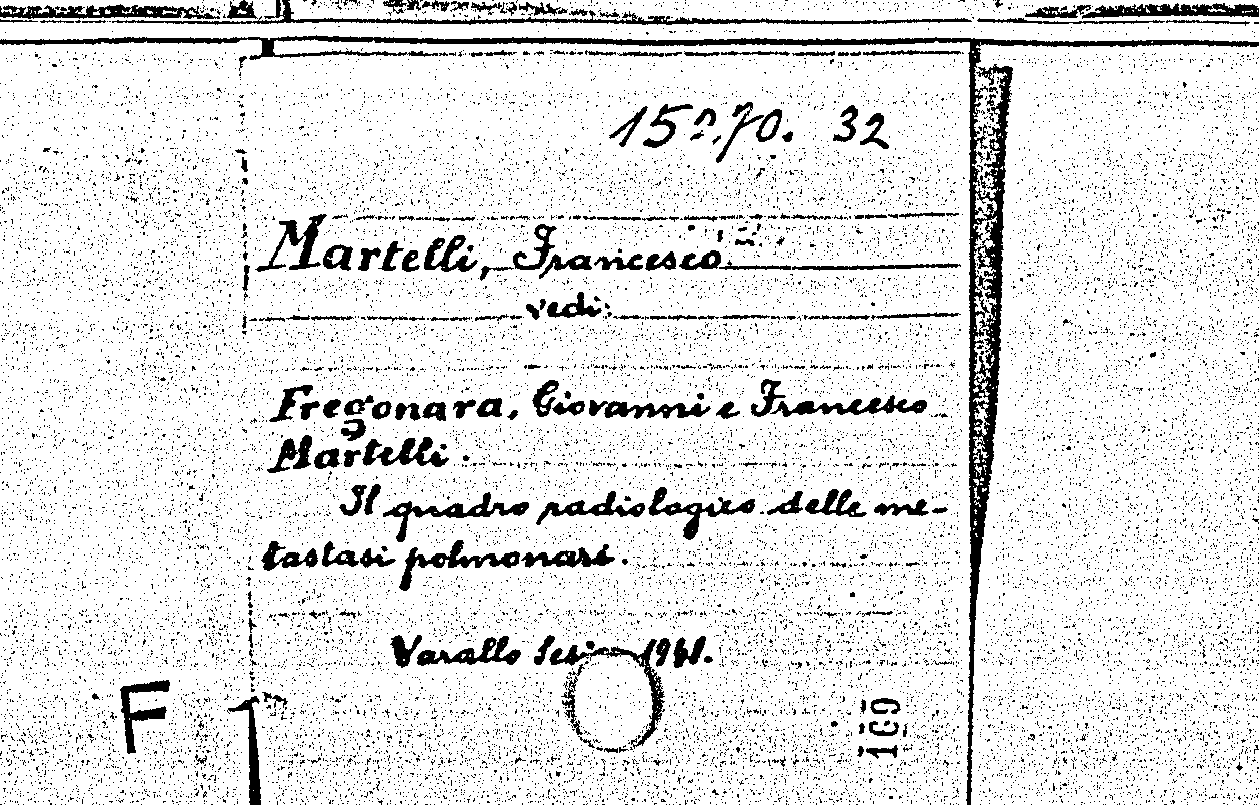 32
Martelli, Francesco.
vedi:
Fregonara, Giovanni e Francesco
Martelli.
Il quadro radiologico delle me-
tastasi polmonari.
Varallo Sesia 1941.
F
109